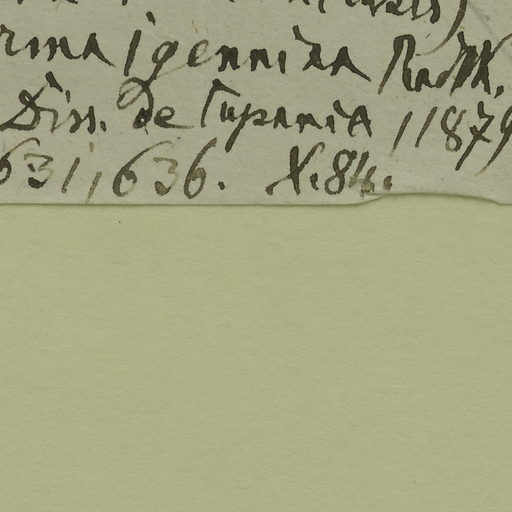 rma genuina Radlk.
Diss. de Cupania, 1879
631, 636. X.84.